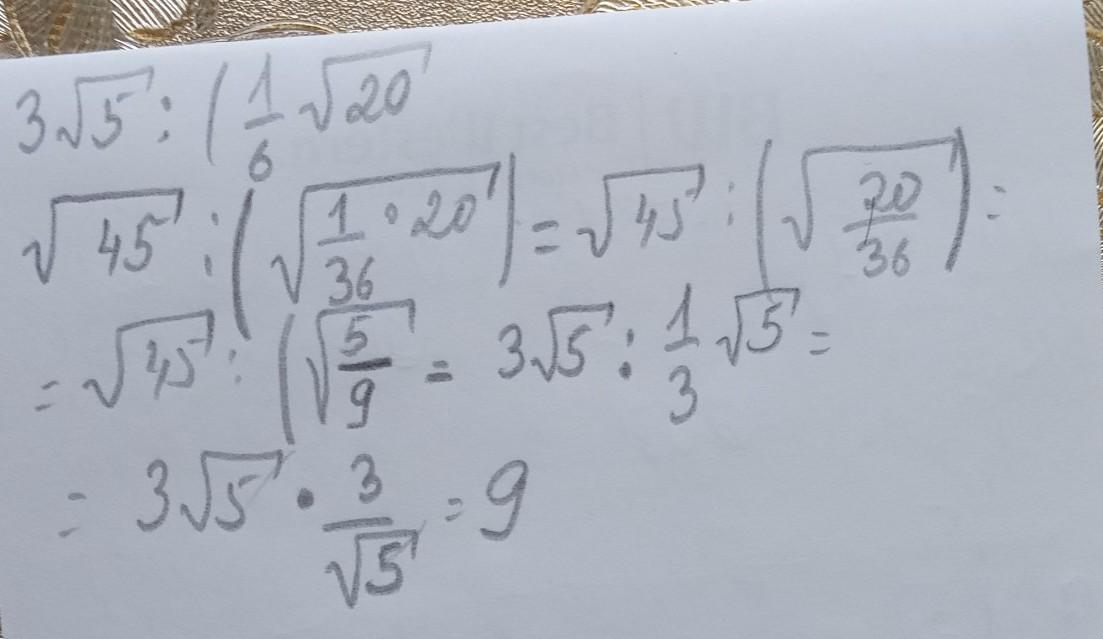 3√5 : (1/6 √20
√45 : (√(1/36 · 20)) = √45 : (√(20/36)) =
= √45 : (√(5/9) = 3√5 : 1/3 √5 =
= 3√5 · 3/√5 = 9